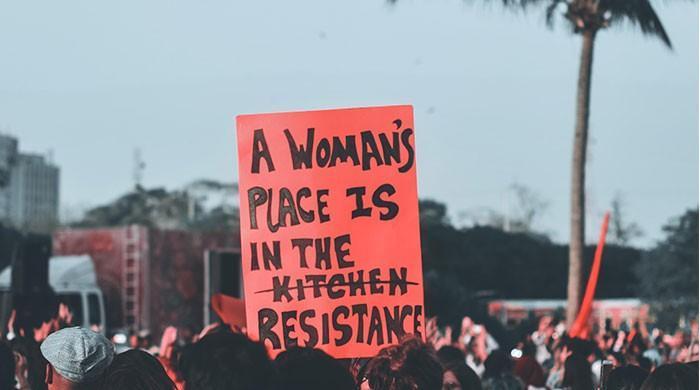 A WOMAN'S
PLACE IS
IN THE
KITCHEN
RESISTANCE